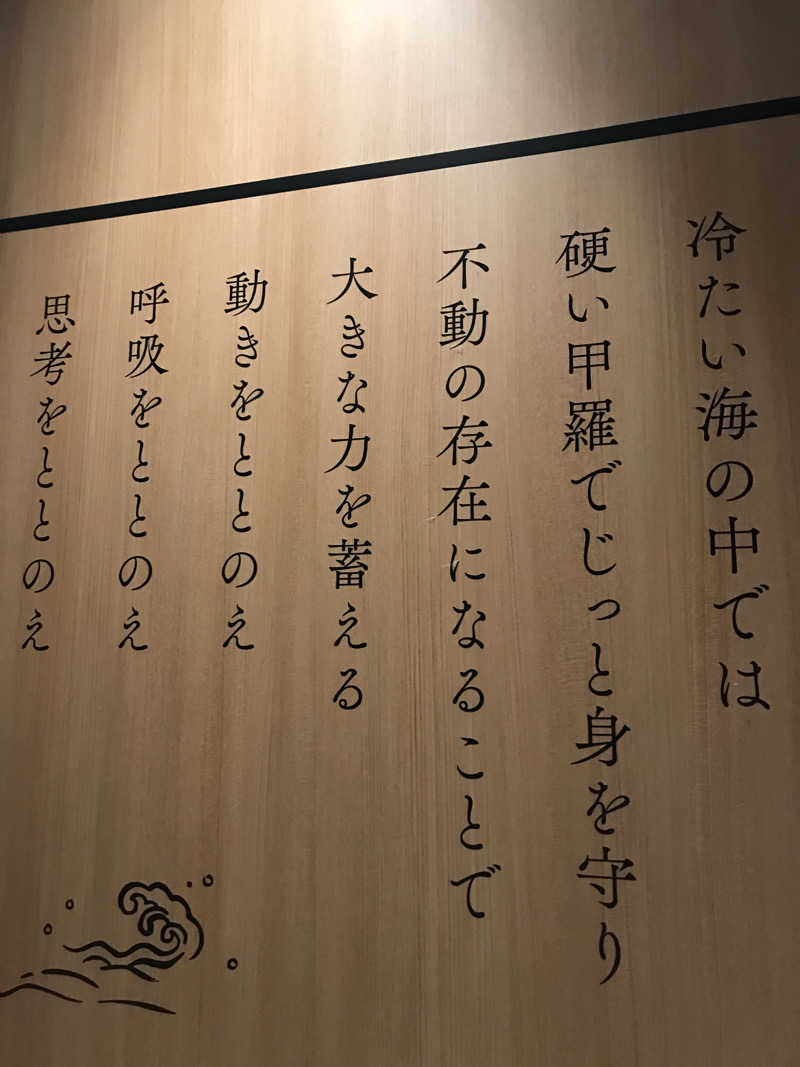 冷たい海の中では
硬い甲羅でじっと身を守り
不動の存在になることで
大きな力を蓄える
動きをととのえ
呼吸をととのえ
思考をととのえ